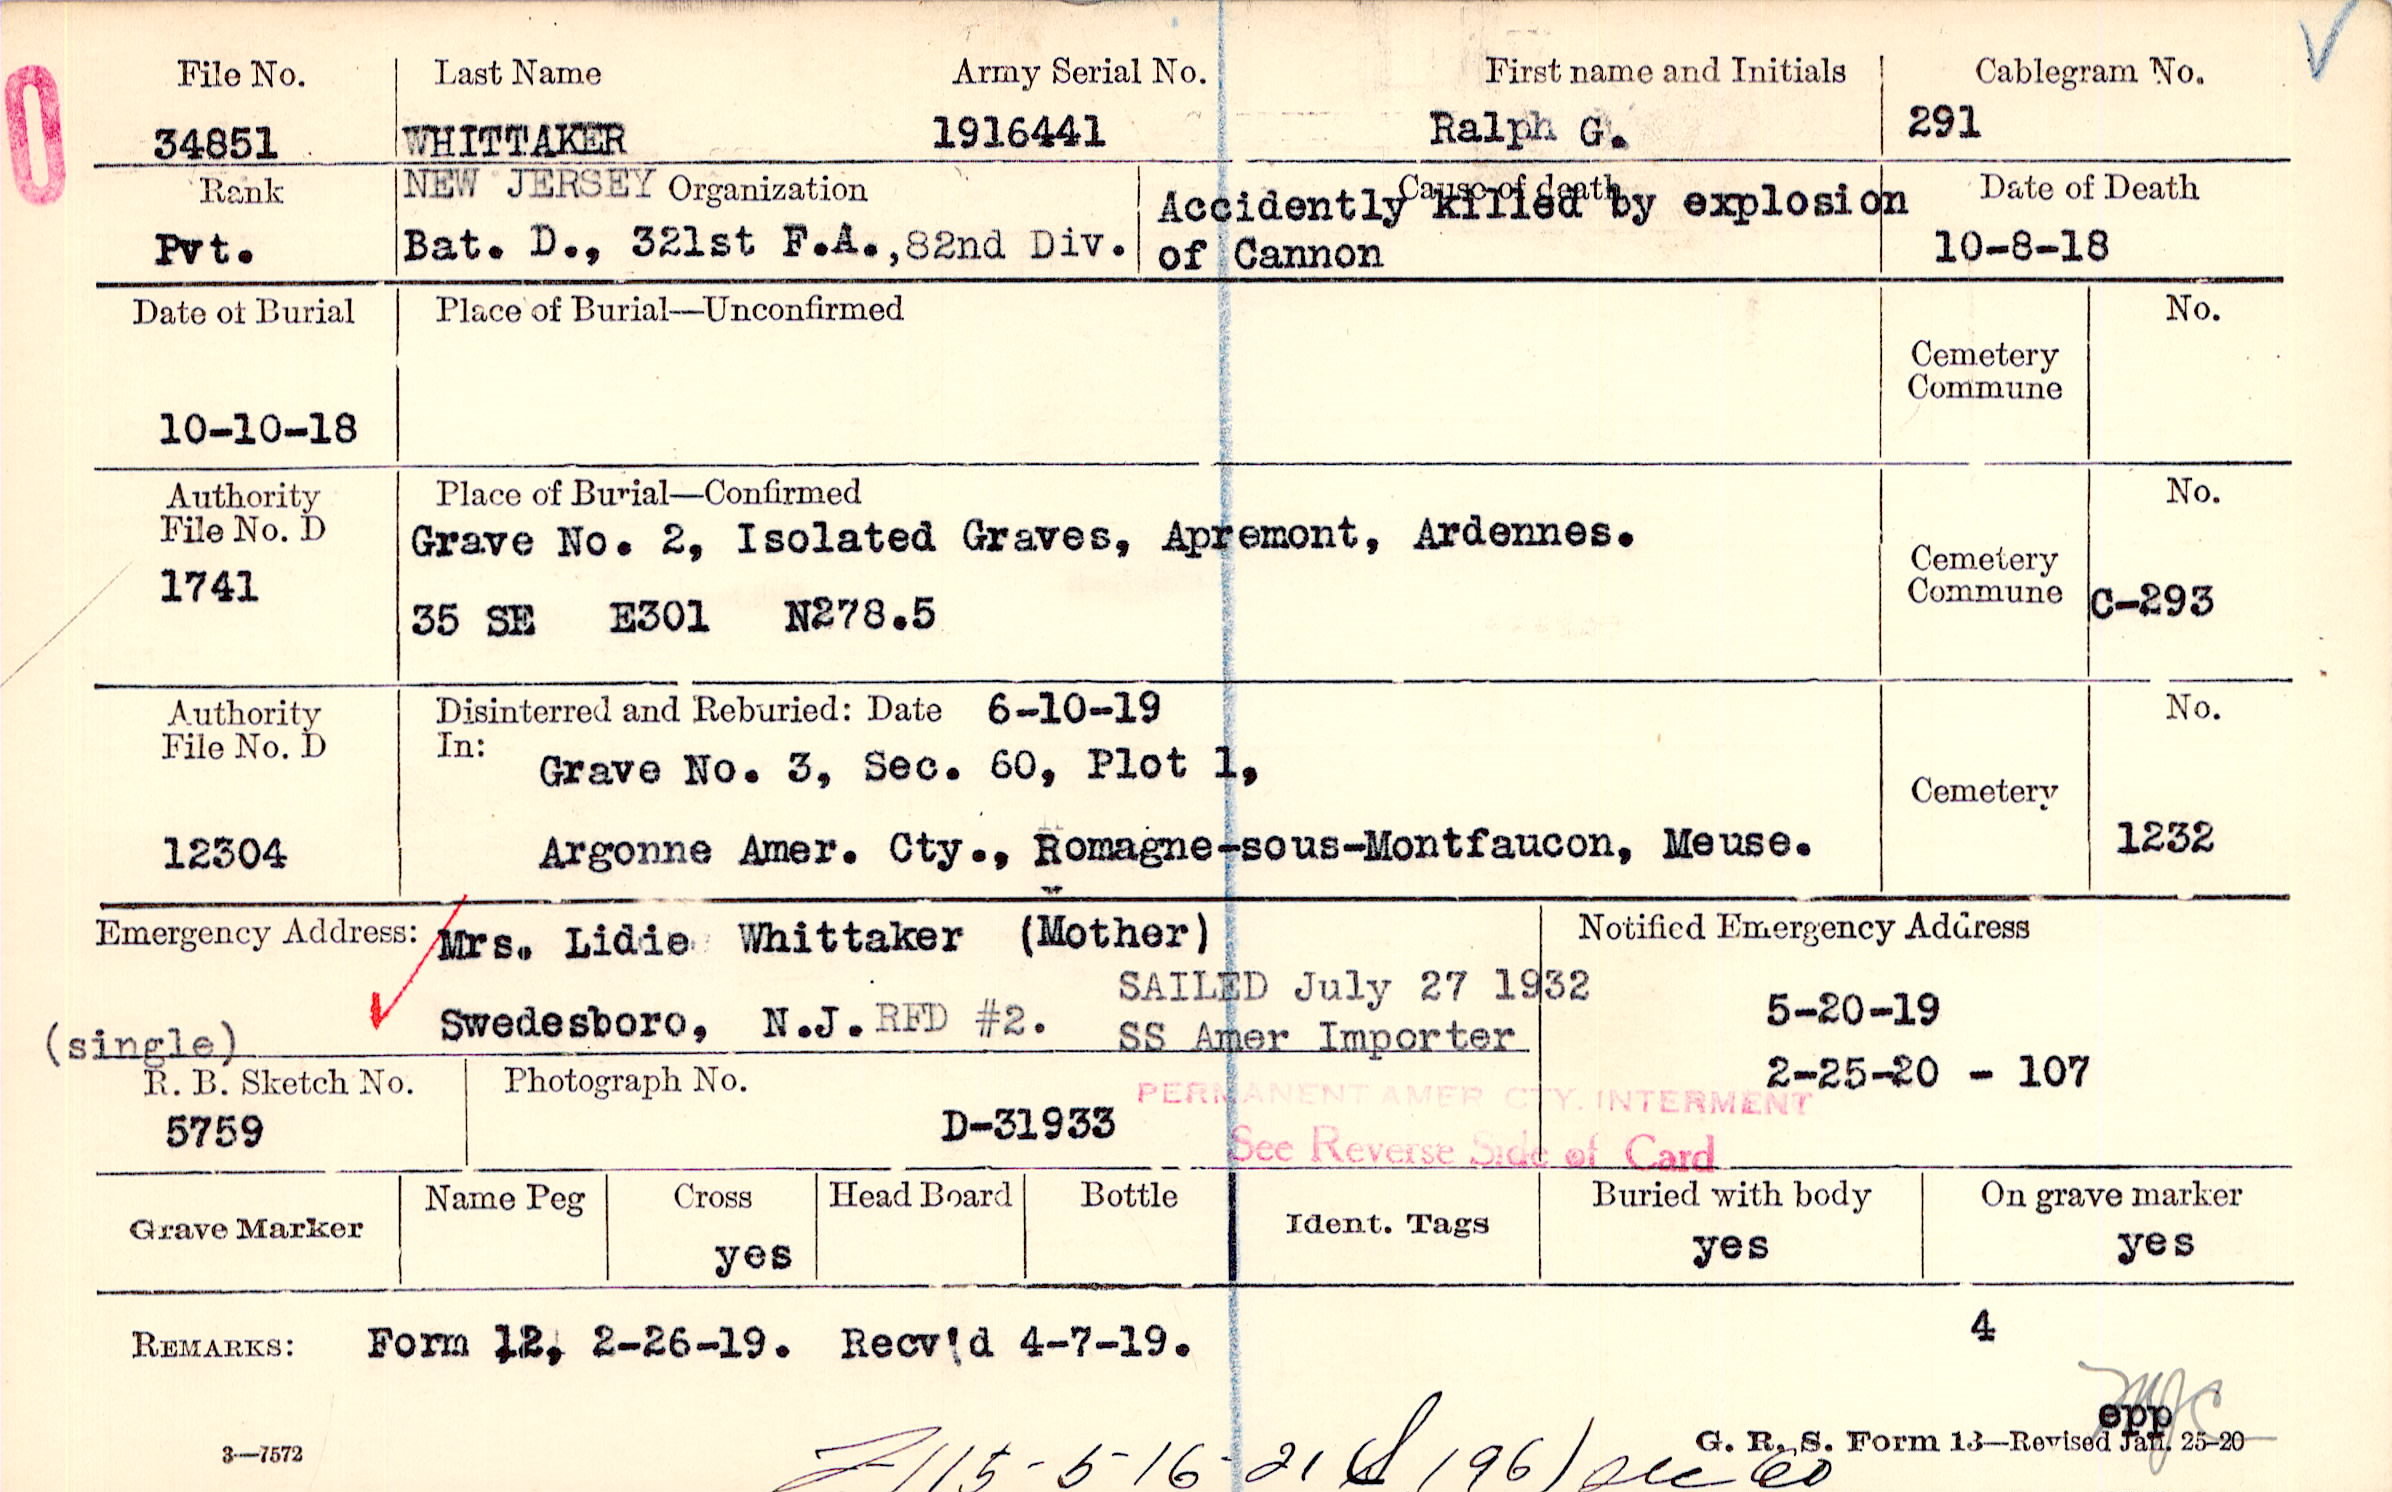 File No. Last Name Army Serial No. First name and Initials Cablegram No.
34851 WHITTAKER 1916441 Ralph G. 291
Rank NEW JERSEY Organization Cause of death Date of Death
Pvt. Bat. D., 321st F.A.,82nd Div. Accidently killed by explosion of Cannon 10-8-18
Date of Burial Place of Burial—Unconfirmed No.
Cemetery
Commune
10-10-18
Authority Place of Burial—Confirmed No.
File No. D Grave No. 2, Isolated Graves, Apremont, Ardennes.
1741 35 SE E301 N278.5 Cemetery Commune C-293
Authority Disinterred and Reburied: Date 6-10-19 No.
File No. D In: Grave No. 3, Sec. 60, Plot 1,
Cemetery
12304 Argonne Amer. Cty., Romagne-sous-Montfaucon, Meuse. 1232
Emergency Address: Mrs. Lidie Whittaker (Mother) Notified Emergency Address
SAILED July 27 1932 5-20-19
(single) Swedesboro, N.J. RFD #2. SS Amer Importer
2-25-20 - 107
R. B. Sketch No. Photograph No. PERMANENT AMER CTY. INTERMENT
5759 D-31933 See Reverse Side of Card
Grave Marker Name Peg Cross Head Board Bottle Ident. Tags Buried with body On grave marker
yes yes yes
REMARKS: Form 12, 2-26-19. Recv'd 4-7-19. 4
epp
3—7572 G. R. S. Form 13—Revised Jan. 25-20
115-5-16-21